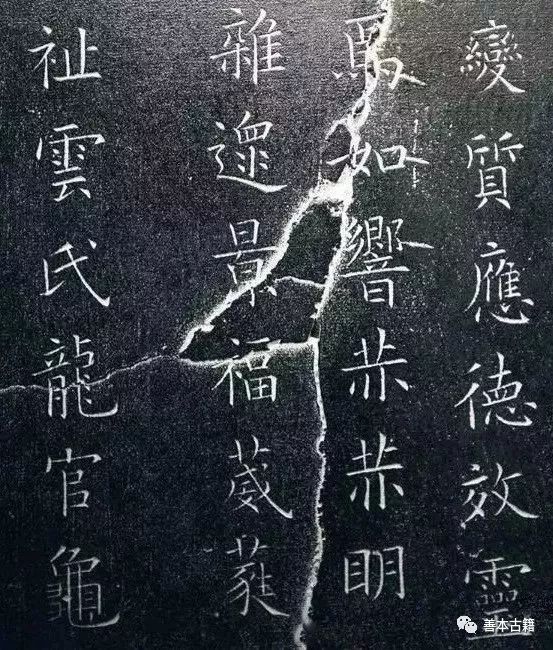 變質應徳效靈
焉如響赫赫眀
雜遝景福葳蕤
祉雲氏龍官龜
善本古籍